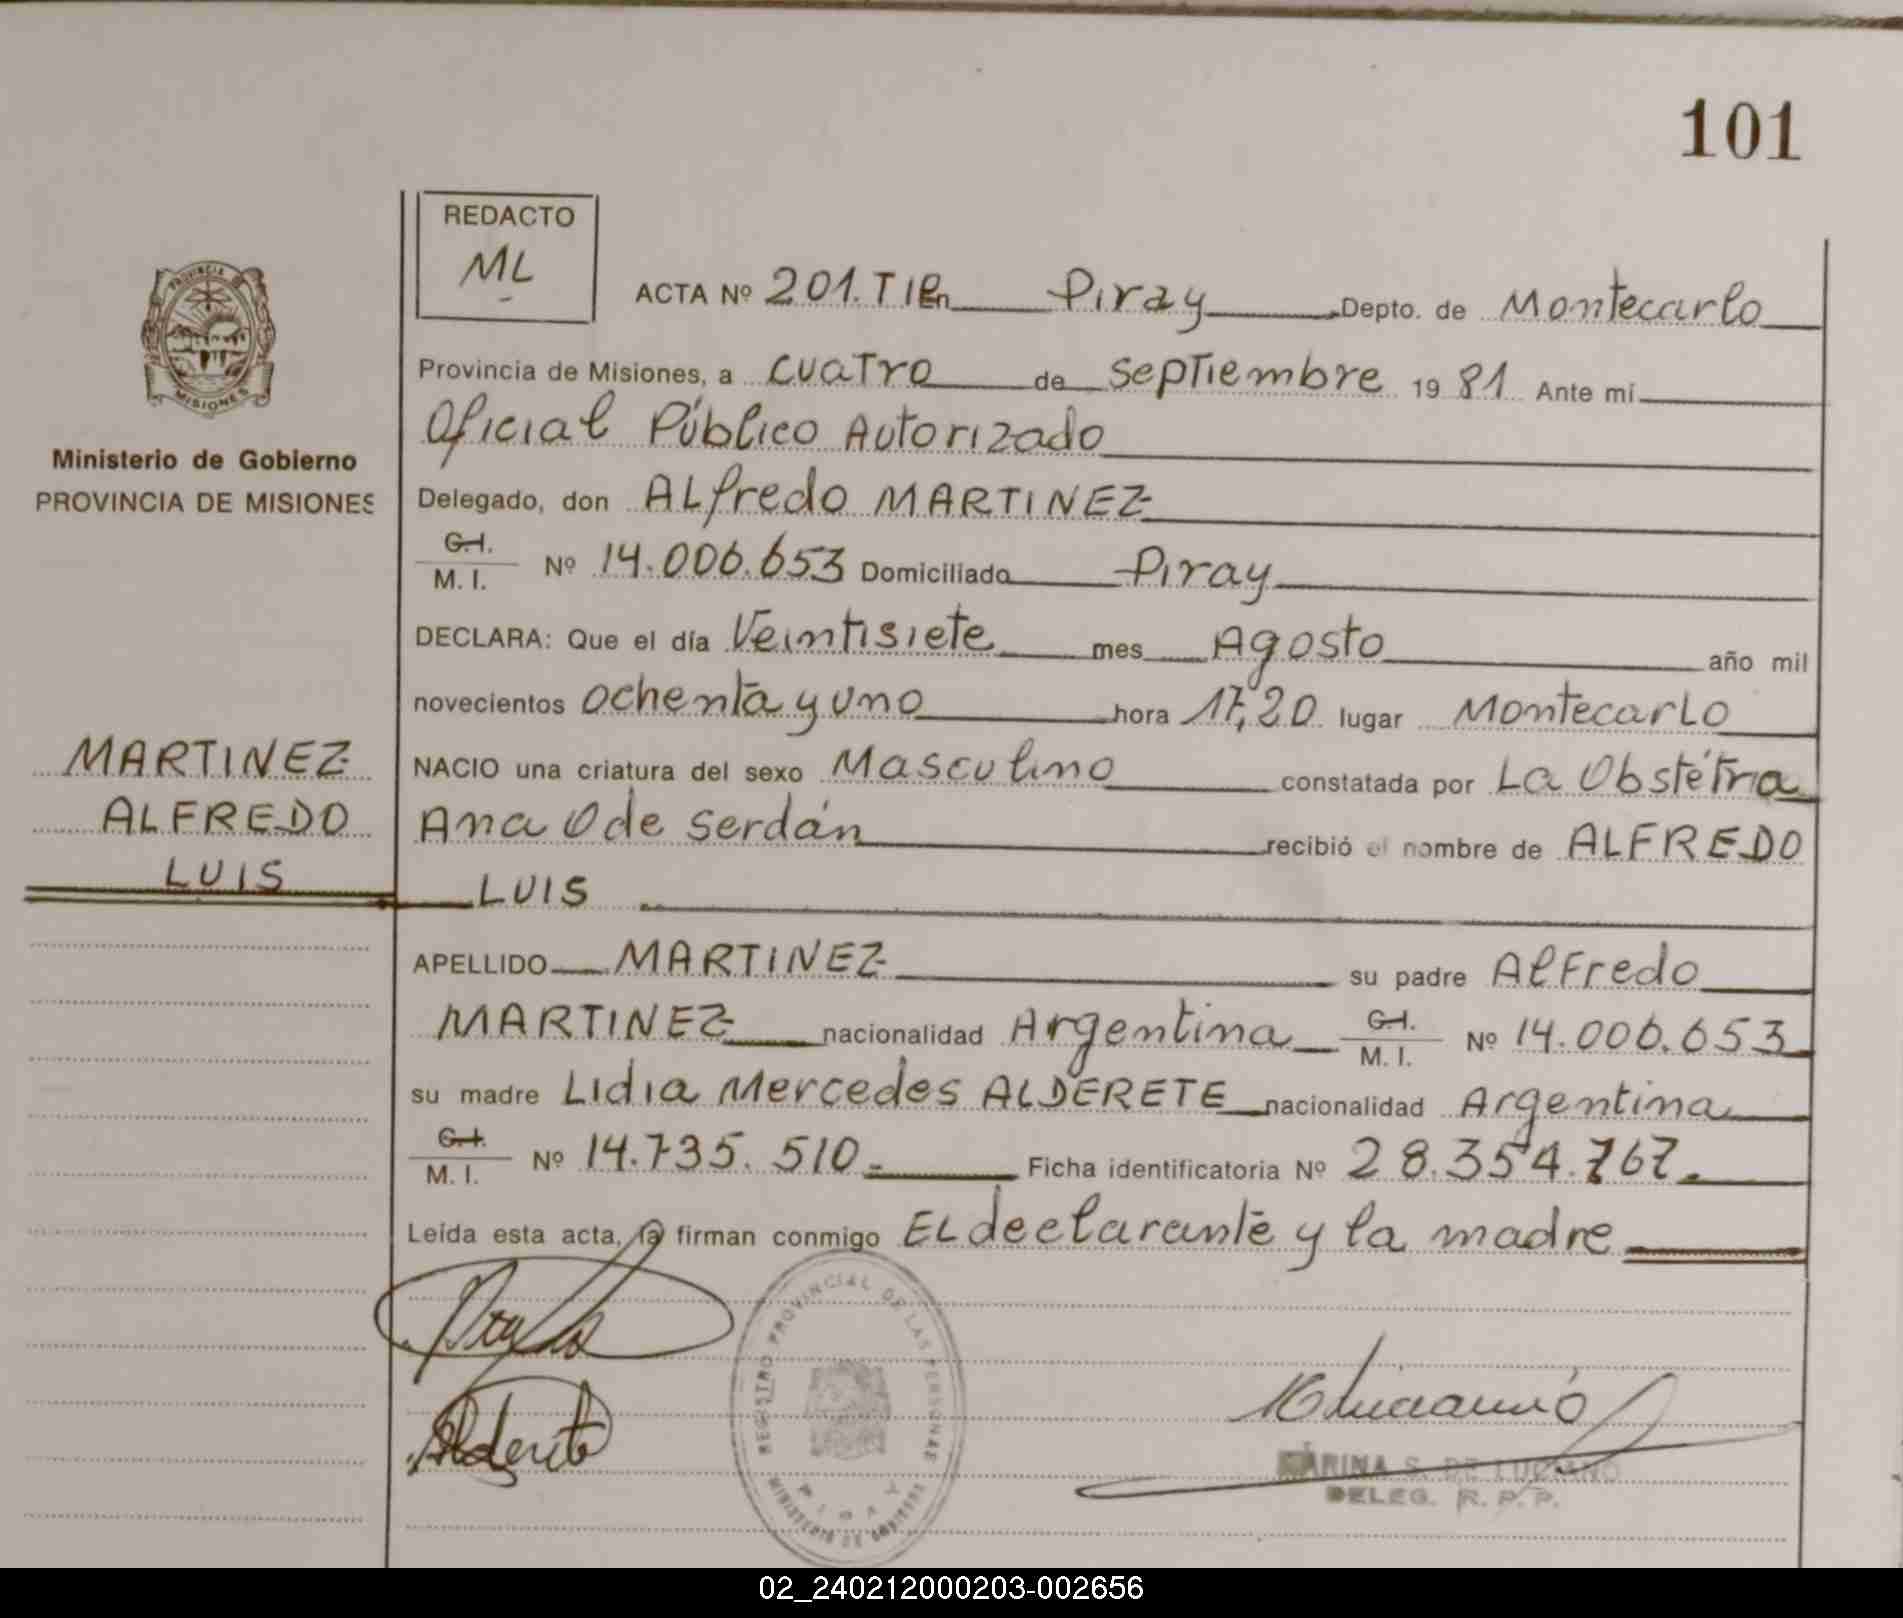 101
REDACTO
ML
PROVINCIA
MISIONES
Ministerio de Gobierno
PROVINCIA DE MISIONES
MARTINEZ
ALFREDO
LUIS
ACTA Nº 201. T I En Piray Depto. de Montecarlo
Provincia de Misiones, a cuatro de septiembre 1981 Ante mí
Oficial Público Autorizado
Delegado, don Alfredo MARTINEZ
C.I. M. I. Nº 14.006.653 Domiciliado Piray
DECLARA: Que el día Veintisiete mes Agosto año mil
novecientos ochenta y uno hora 17,20 lugar Montecarlo
NACIO una criatura del sexo Masculino constatada por La Obstétria
Ana O de Serdán recibió el nombre de ALFREDO
LUIS
APELLIDO MARTINEZ su padre Alfredo
MARTINEZ nacionalidad Argentina C.I. M. I. Nº 14.006.653
su madre Lidia Mercedes ALDERETE nacionalidad Argentina
C.I. M. I. Nº 14.735.510.- Ficha identificatoria Nº 28.354.767.-
Leída esta acta, la firman conmigo El declarante y la madre
Alderete
REGISTRO PROVINCIAL DE LAS PERSONAS
PIRAY
MINISTERIO DE GOBIERNO
MARINA S. DE LUCIANO
DELEG. R. P. P.
02_240212000203-002656